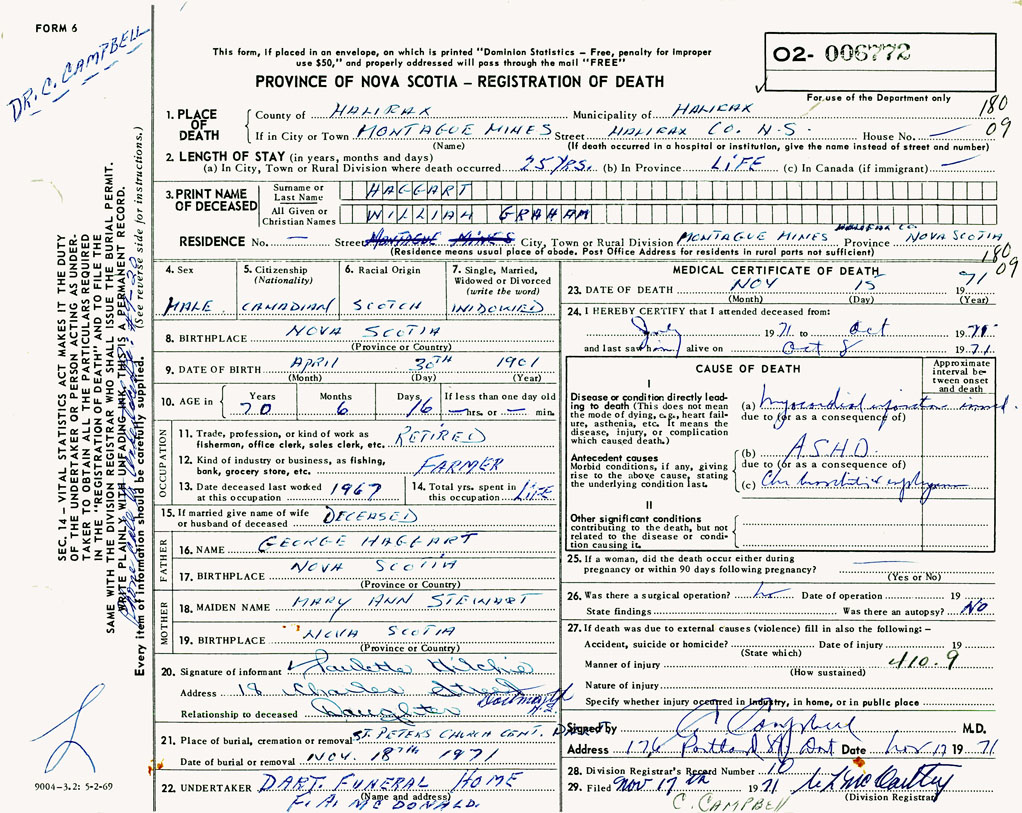 FORM 6
DR. C. CAMPBELL
This form, if placed in an envelope, on which is printed "Dominion Statistics – Free, penalty for improper
use $50," and properly addressed will pass through the mail "FREE"
PROVINCE OF NOVA SCOTIA – REGISTRATION OF DEATH
02- 006772
For use of the Department only
180
09
1. PLACE OF DEATH
County of HALIFAX Municipality of HALIFAX
If in City or Town MONTAGUE MINES Street HALIFAX CO. N.S. House No. —
(Name) (If death occurred in a hospital or institution, give the name instead of street and number)
2. LENGTH OF STAY (in years, months and days)
(a) In City, Town or Rural Division where death occurred 25 YRS. (b) In Province LIFE (c) In Canada (if immigrant) —
3. PRINT NAME OF DECEASED
Surname or Last Name HAGGART
All Given or Christian Names WILLIAM GRAHAM
HALIFAX CO.
RESIDENCE No. — Street MONTAGUE MINES City, Town or Rural Division MONTAGUE MINES Province NOVA SCOTIA
(Residence means usual place of abode. Post Office Address for residents in rural parts not sufficient)
180
09
4. Sex MALE
5. Citizenship (Nationality) CANADIAN
6. Racial Origin SCOTCH
7. Single, Married, Widowed or Divorced (write the word) WIDOWED
8. BIRTHPLACE NOVA SCOTIA
(Province or Country)
9. DATE OF BIRTH APRIL 30TH 1901
(Month) (Day) (Year)
10. AGE in Years 70 Months 6 Days 16 If less than one day old — hrs. or — min.
OCCUPATION
11. Trade, profession, or kind of work as fisherman, office clerk, sales clerk, etc. RETIRED
12. Kind of industry or business, as fishing, bank, grocery store, etc. FARMER
13. Date deceased last worked at this occupation 1967
14. Total yrs. spent in this occupation LIFE
15. If married give name of wife or husband of deceased DECEASED
FATHER
16. NAME GEORGE HAGGART
17. BIRTHPLACE NOVA SCOTIA
(Province or Country)
MOTHER
18. MAIDEN NAME MARY ANN STEWART
19. BIRTHPLACE NOVA SCOTIA
(Province or Country)
20. Signature of informant Paulette Ritchie
Address 18 Charles Street Dartmouth N.S.
Relationship to deceased Daughter
21. Place of burial, cremation or removal ST. PETERS CHURCH CEMT.
Date of burial or removal NOV. 18TH 1971
22. UNDERTAKER DART. FUNERAL HOME
(Name and address)
F.A. MCDONALD.
MEDICAL CERTIFICATE OF DEATH
23. DATE OF DEATH NOV 15 1971
(Month) (Day) (Year)
24. I HEREBY CERTIFY that I attended deceased from:
July 1971 to Oct 1971
and last saw him alive on Oct 8 1971
CAUSE OF DEATH
Approximate interval between onset and death
I
Disease or condition directly leading to death (This does not mean the mode of dying, e.g., heart failure, asthenia, etc. It means the disease, injury, or complication which caused death.)
(a) Myocardial infarction immed.
due to (or as a consequence of)
Antecedent causes
Morbid conditions, if any, giving rise to the above cause, stating the underlying condition last.
(b) A.S.H.D.
due to (or as a consequence of)
(c) Chr bronchitis & emphysema
II
Other significant conditions
contributing to the death, but not related to the disease or condition causing it.
25. If a woman, did the death occur either during pregnancy or within 90 days following pregnancy? —
(Yes or No)
26. Was there a surgical operation? no Date of operation 19
State findings Was there an autopsy? NO
27. If death was due to external causes (violence) fill in also the following: –
Accident, suicide or homicide? Date of injury 19
(State which)
Manner of injury 410.9
(How sustained)
Nature of injury
Specify whether injury occurred in industry, in home, or in public place
Signed by C Campbell M.D.
Address 176 Portland St, Dart Date Nov 17 1971
28. Division Registrar's Record Number 10
29. Filed Nov 17th 1971
(Division Registrar)
C. CAMPBELL
SEC. 14 – VITAL STATISTICS ACT MAKES IT THE DUTY
OF THE UNDERTAKER OR PERSON ACTING AS UNDER-
TAKER TO OBTAIN ALL THE PARTICULARS REQUIRED
IN THE "REGISTRATION OF DEATH" AND TO FILE THE
SAME WITH THE DIVISION REGISTRAR WHO SHALL ISSUE THE BURIAL PERMIT.
WRITE PLAINLY WITH UNFADING INK. THIS IS A PERMANENT RECORD.
Every item of information should be carefully supplied. (See reverse side for instructions.)
9004-3.2: 5-2-69